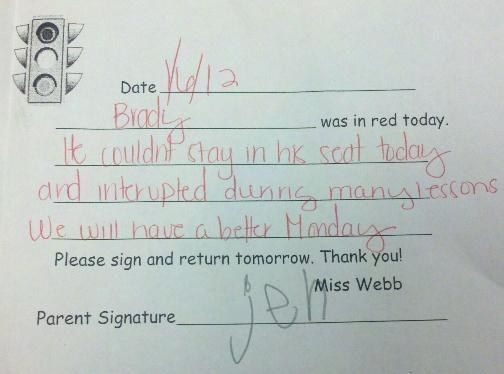 Date 1/6/12
Brady was in red today.
He couldnt stay in his seat today
and interupted during many lessons
We will have a better Monday
Please sign and return tomorrow. Thank you!
Miss Webb
Parent Signature jeh